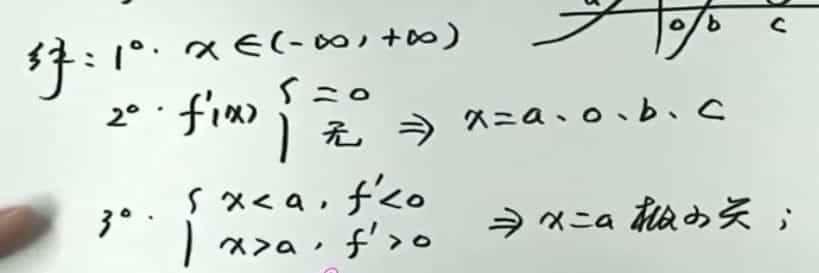 a
o b c
解：1°. x∈(-∞, +∞)
2°. f'(x) { =0 无 ⇒ x=a、0、b、c
3°. { x<a, f'<0
x>a, f'>0 ⇒ x=a 极小点；